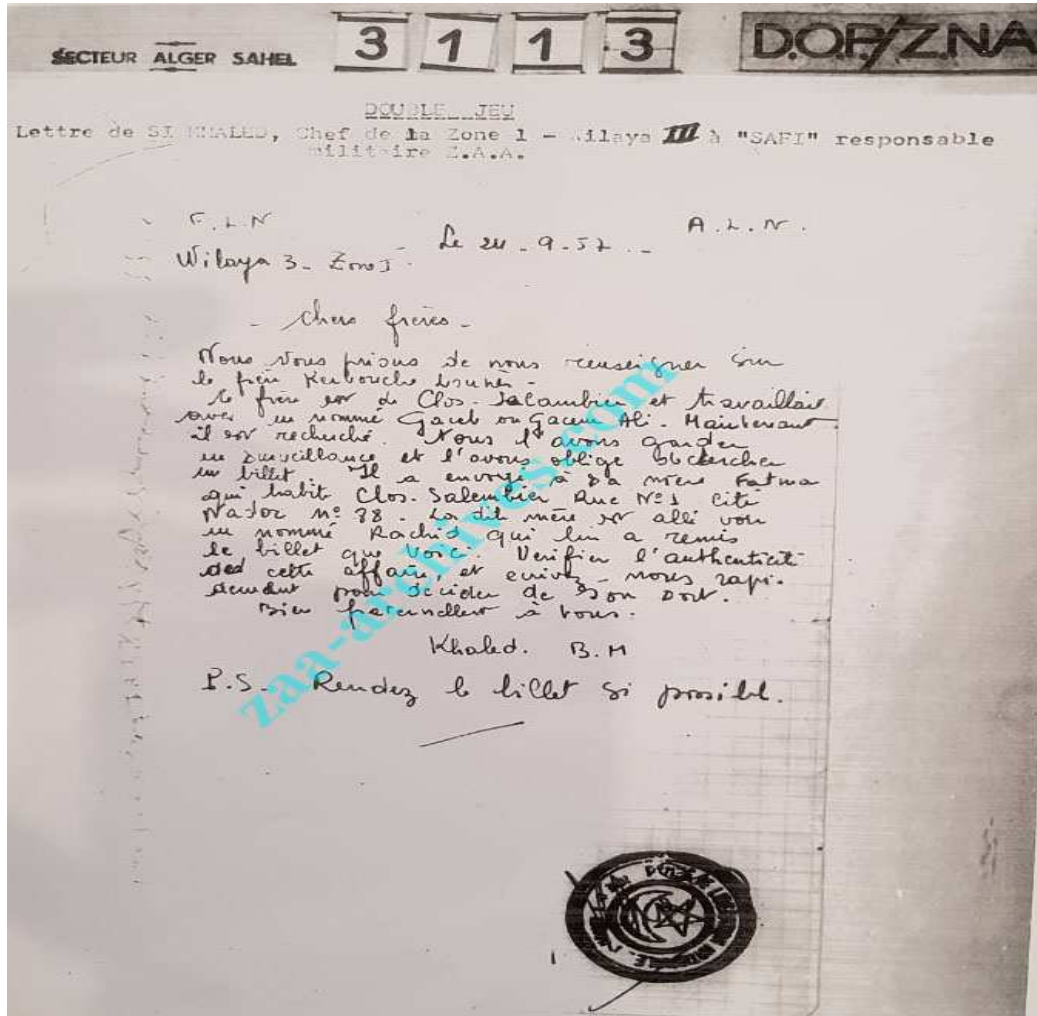 SECTEUR ALGER SAHEL 3 1 1 3 D.O.P/Z.NA
DOUBLE JEU
Lettre de SI KHALED, Chef de la Zone 1 - Wilaya III à "SAFI" responsable
militaire Z.A.A.
F.L.N A.L.N.
Le 24-9-57.-
Wilaya 3- Zone I.
- Chers frères -
Nous vous prions de nous renseigner sur
le frère Kerbouche
le frère est de Clos-Salambier et travaillait
avec un nommé Gaceb ou Gacem Ali. Maintenant
il est recherché. Nous l'avons garder
en surveillance et l'avons oblige
un billet. Il a envoyé à sa mère Fatma
qui habite Clos-Salembier Rue N°1 cité
Nador n° 88. La dite mère est allé voir
un nommé Rachid qui lui a remis
le billet que voici. Verifier l'authenticité
ded cette affaire, et écrivez-nous rapi-
dement pour decider de son sort.
Bien fraternellement à vous.
Khaled. B.M
P.S. Rendez le billet si possible.
zaa-archives.com